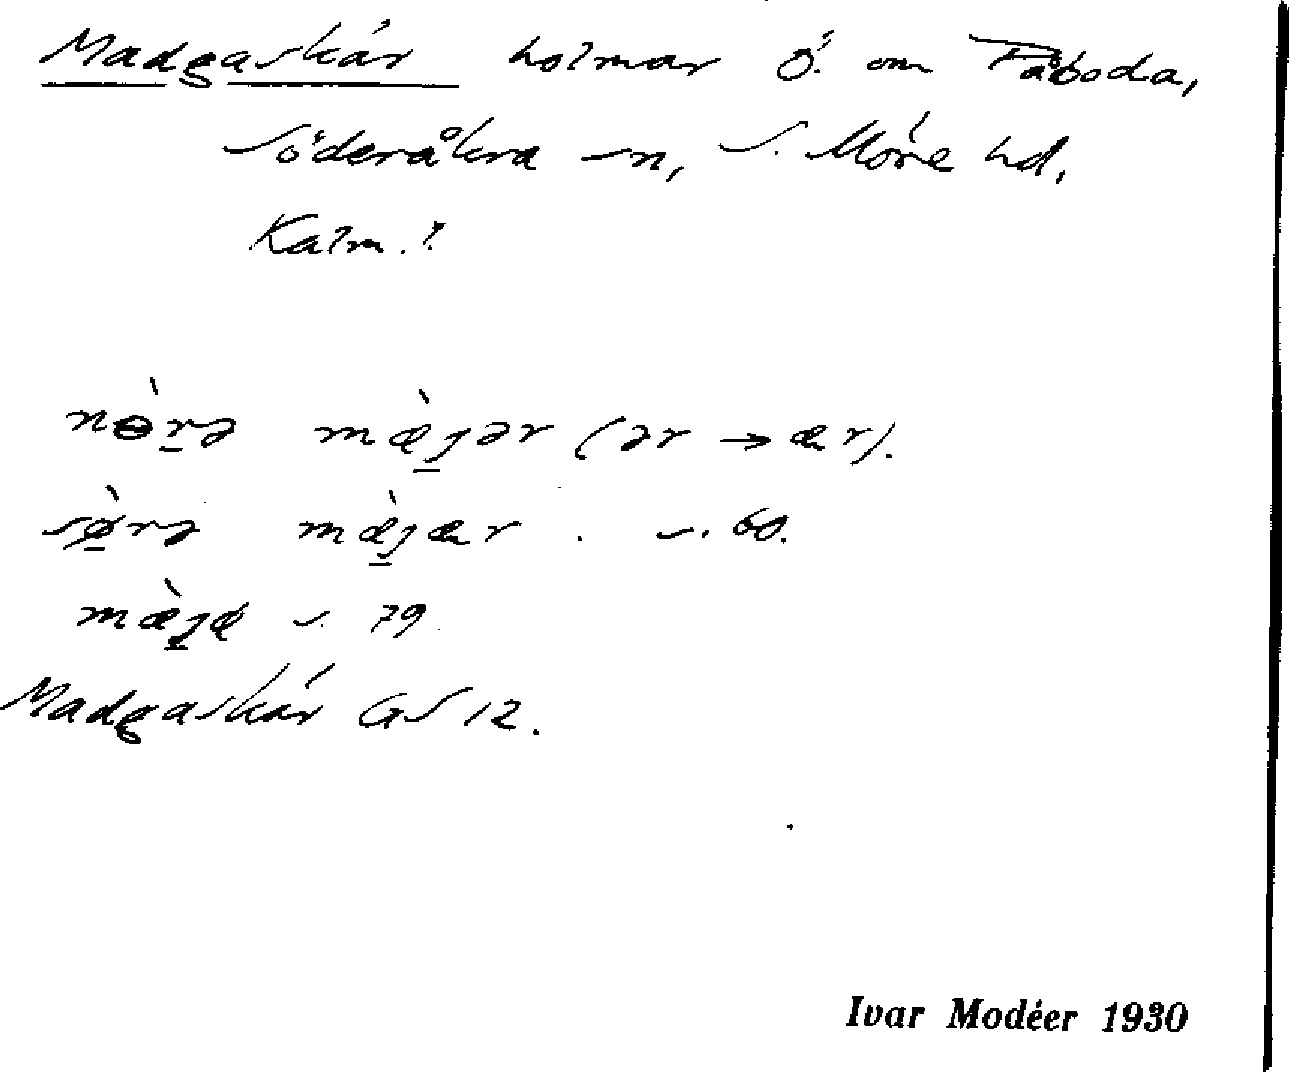 Madgaskár holmar Ö. om Påboda,
Söderåkra sn, S. Möre hd,
Kalm. l.
nɵ̀rə mæ̀jər (ər → ær).
sø̀rə mæ̀jær . s. 60.
mæ̀jæ s. 79.
Madgaskár GS 12.
Ivar Modéer 1930